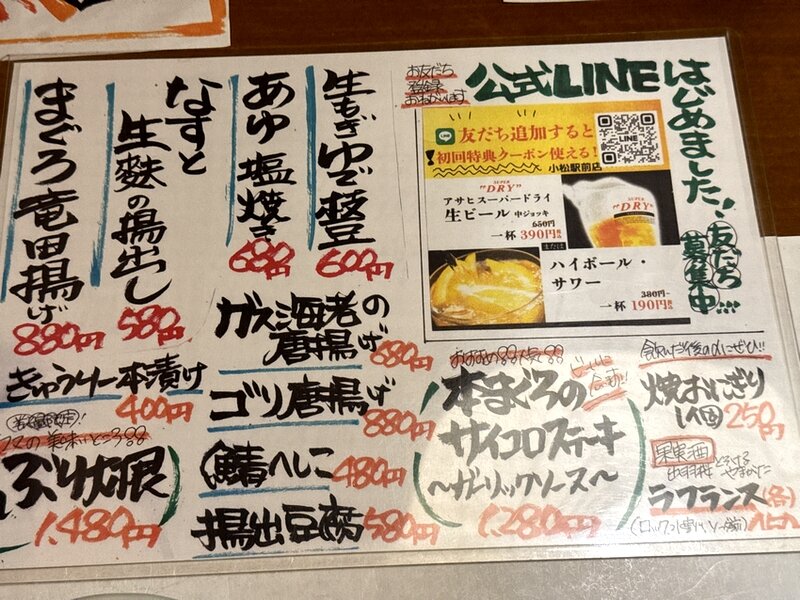 はじめました！
公式LINE
お友だち
登録
お願いします
友だち
募集中…
LINE
友だち追加すると
初回特典クーポン使える！
小松駅前店
SUPER
"DRY"
アサヒスーパードライ
生ビール 中ジョッキ
650円
一杯 390円
または
ハイボール・
サワー
380円
一杯 190円
生もぎゆで豆
600円
あゆ塩焼き
680円
なすと
生麩の揚出し
580円
まぐろ竜田揚げ
880円
ガス海老の
唐揚げ
680円
きゅうり一本漬け
400円
ゴリ唐揚げ
880円
数量限定！
ぶり大根
1,480円
鯖へしこ
480円
揚出豆腐
580円
おすすめ
本まぐろの
サイコロステーキ
〜ガーリックソース〜
1,280円
飲んだ後の〆にぜひ!!
焼おにぎり
1個 250円
果実酒
ラフランス(各)